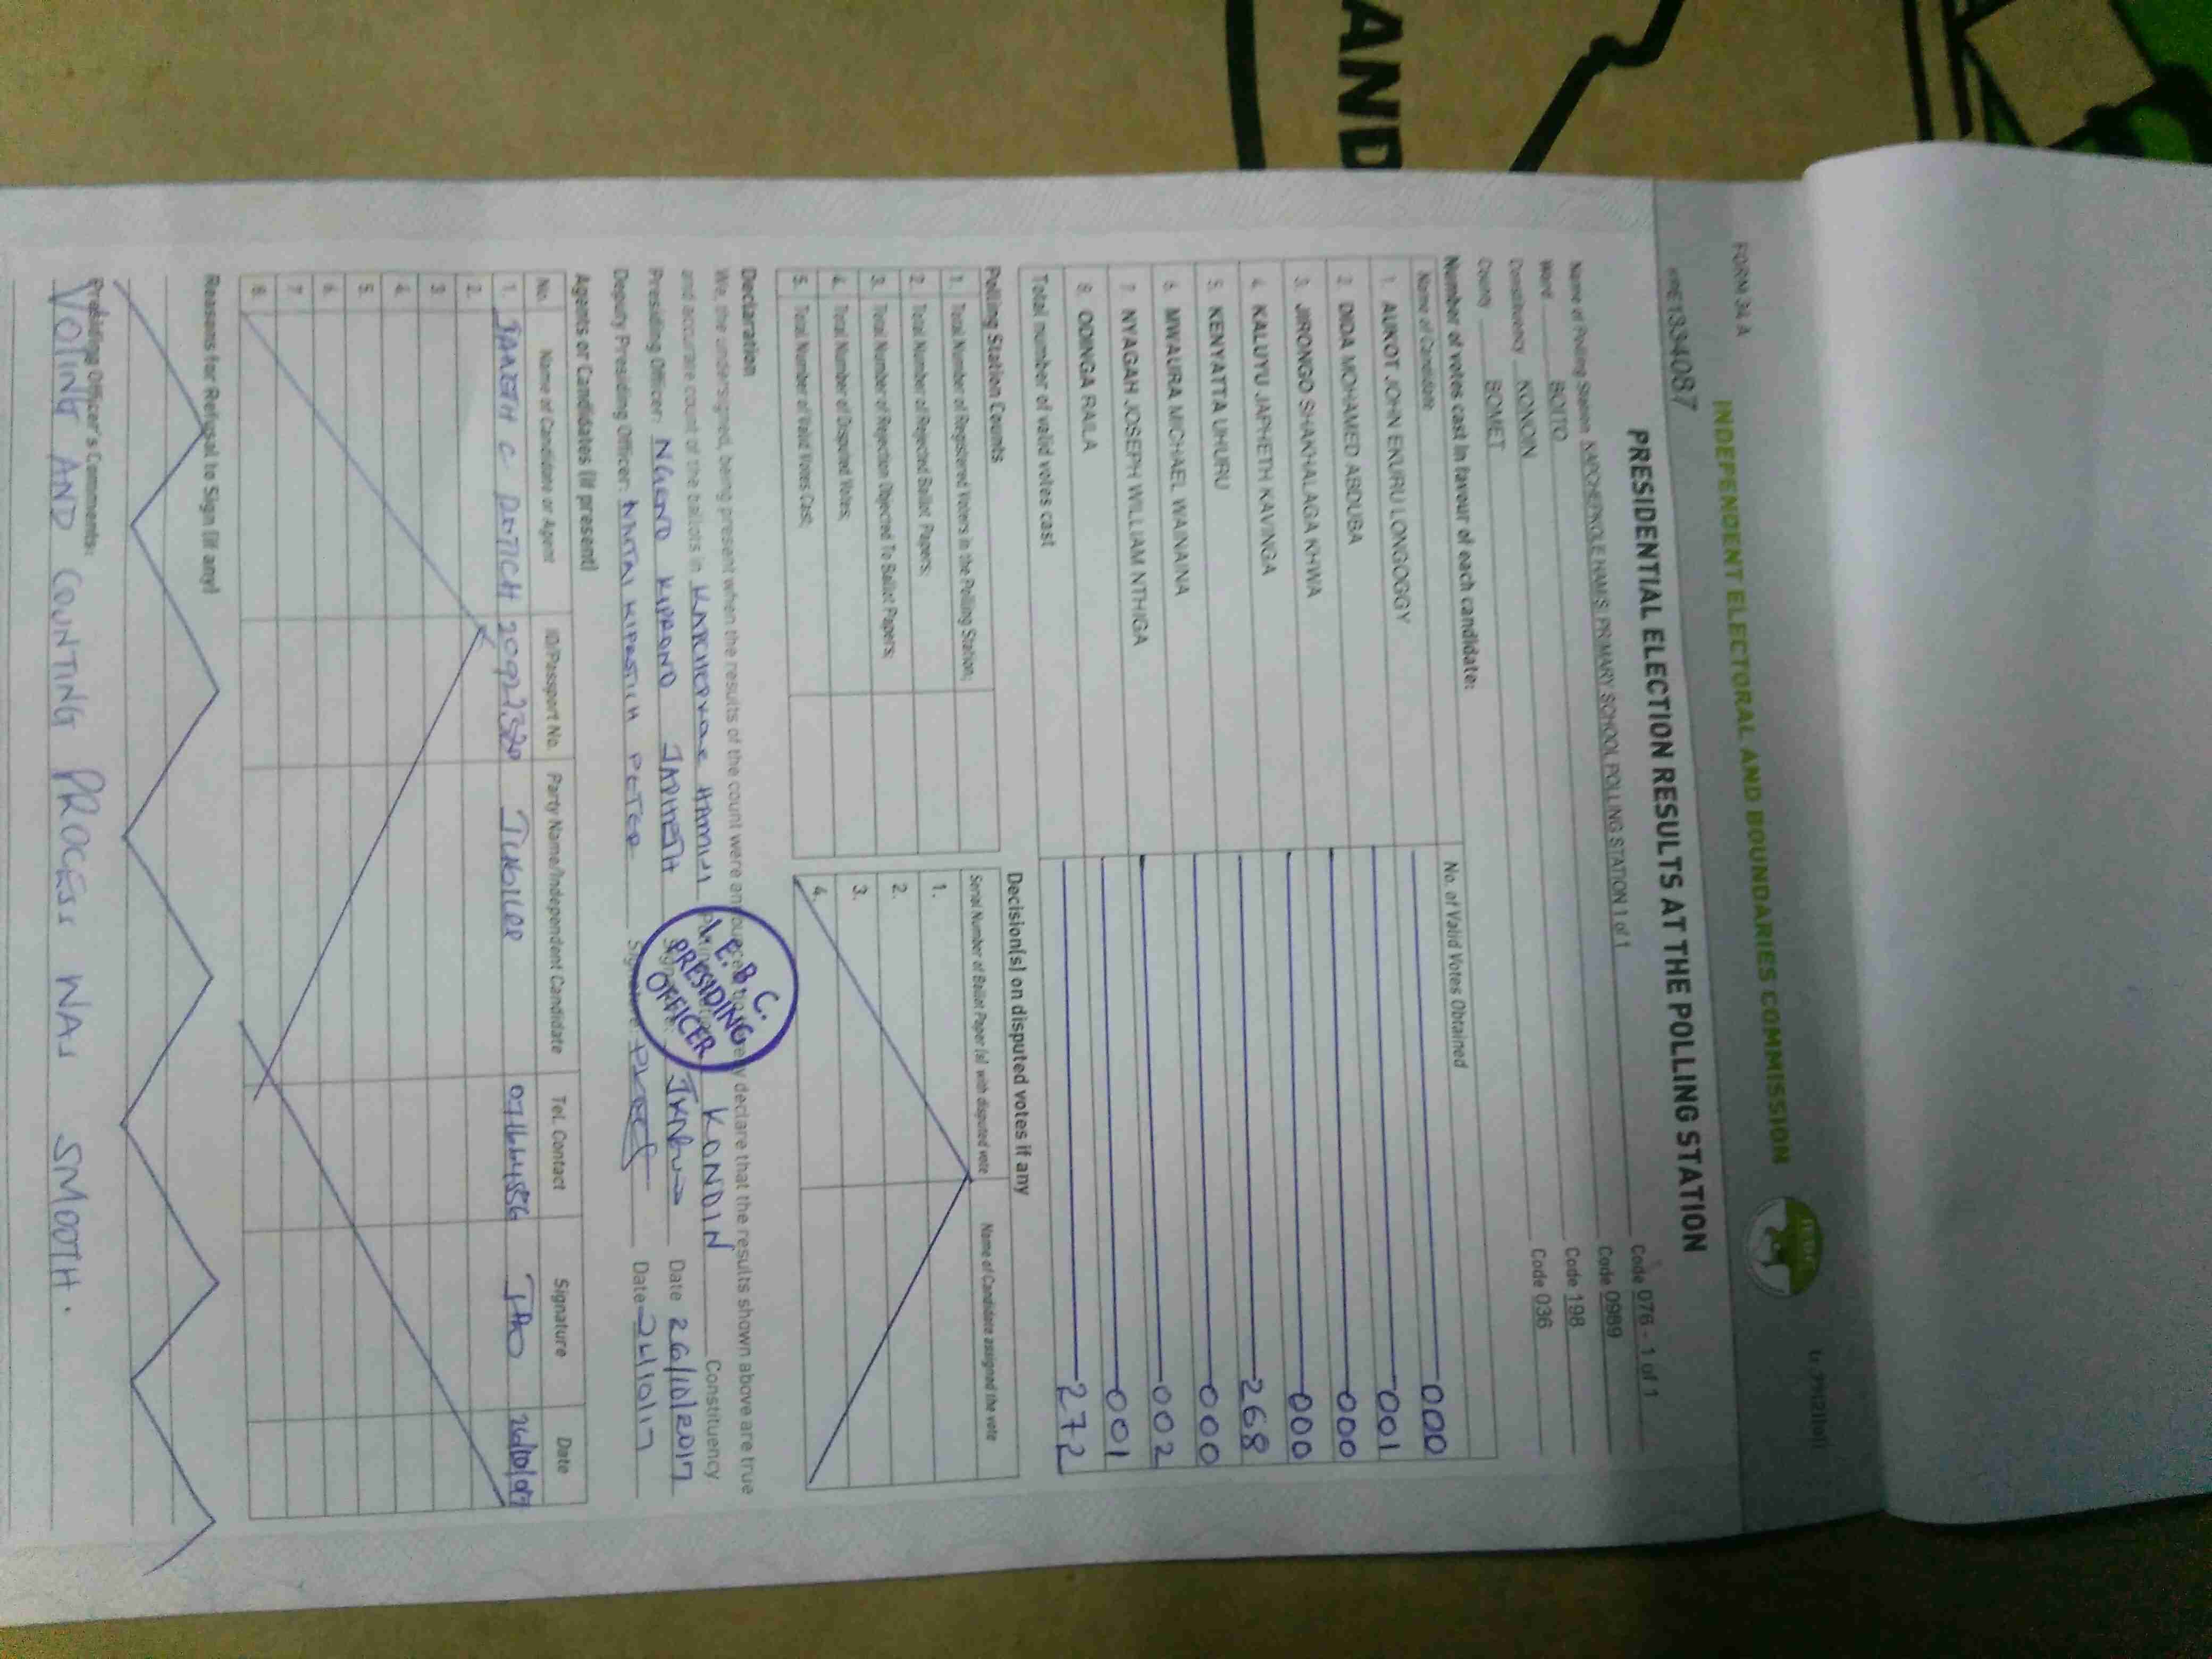 AND
FORM 34 A
INDEPENDENT ELECTORAL AND BOUNDARIES COMMISSION
IEBC
PRESIDENTIAL ELECTION RESULTS AT THE POLLING STATION
Name of Polling Station KAPCHEPKOLE HAMSI PRIMARY SCHOOL POLLING STATION 1 of 1 Code 076 - 1 of 1
Ward BOITO Code 0989
Constituency KONOIN Code 198
County BOMET Code 036
Number of votes cast in favour of each candidate:
Name of Candidate No. of Valid Votes Obtained
1. AUKOT JOHN EKURU LONGOGGY 000
2. DIDA MOHAMED ABDUBA 001
3. JIRONGO SHAKHALAGA KHWA 000
4. KALUYU JAPHETH KAVINGA 000
5. KENYATTA UHURU 268
6. MWAURA MICHAEL WAINAINA 000
7. NYAGAH JOSEPH WILLIAM NTHIGA 002
8. ODINGA RAILA 001
Total number of valid votes cast 272
Polling Station Counts
1. Total Number of Registered Voters in the Polling Station;
2. Total Number of Rejected Ballot Papers;
3. Total Number of Rejection Objected To Ballot Papers;
4. Total Number of Disputed Votes;
5. Total Number of Valid Votes Cast;
Decision(s) on disputed votes if any
Serial Number of Ballot Paper (s) with disputed vote Name of Candidate assigned the vote
1.
2.
3.
4.
Declaration
We, the undersigned, being present when the results of the count were announced, do hereby declare that the results shown above are true
and accurate count of the ballots in KAPCHEPKOLE HAMSI Polling Station KONOIN Constituency
Presiding Officer: NGENO KIPRONO JAPHETH Signature: Date 26/10/2017
Deputy Presiding Officer: KIPNGETICH PETER Signature: Date
I. E. B. C.
PRESIDING
OFFICER
Agents or Candidates (if present)
No. Name of Candidate or Agent ID/Passport No. Party Name/Independent Candidate Tel. Contact Signature Date
1. C 20922320 JUBILEE
2.
3.
4.
5.
6.
7.
8.
Reasons for Refusal to Sign (if any)
Presiding Officer's Comments:
VOTING AND COUNTING PROCESS WAS SMOOTH.